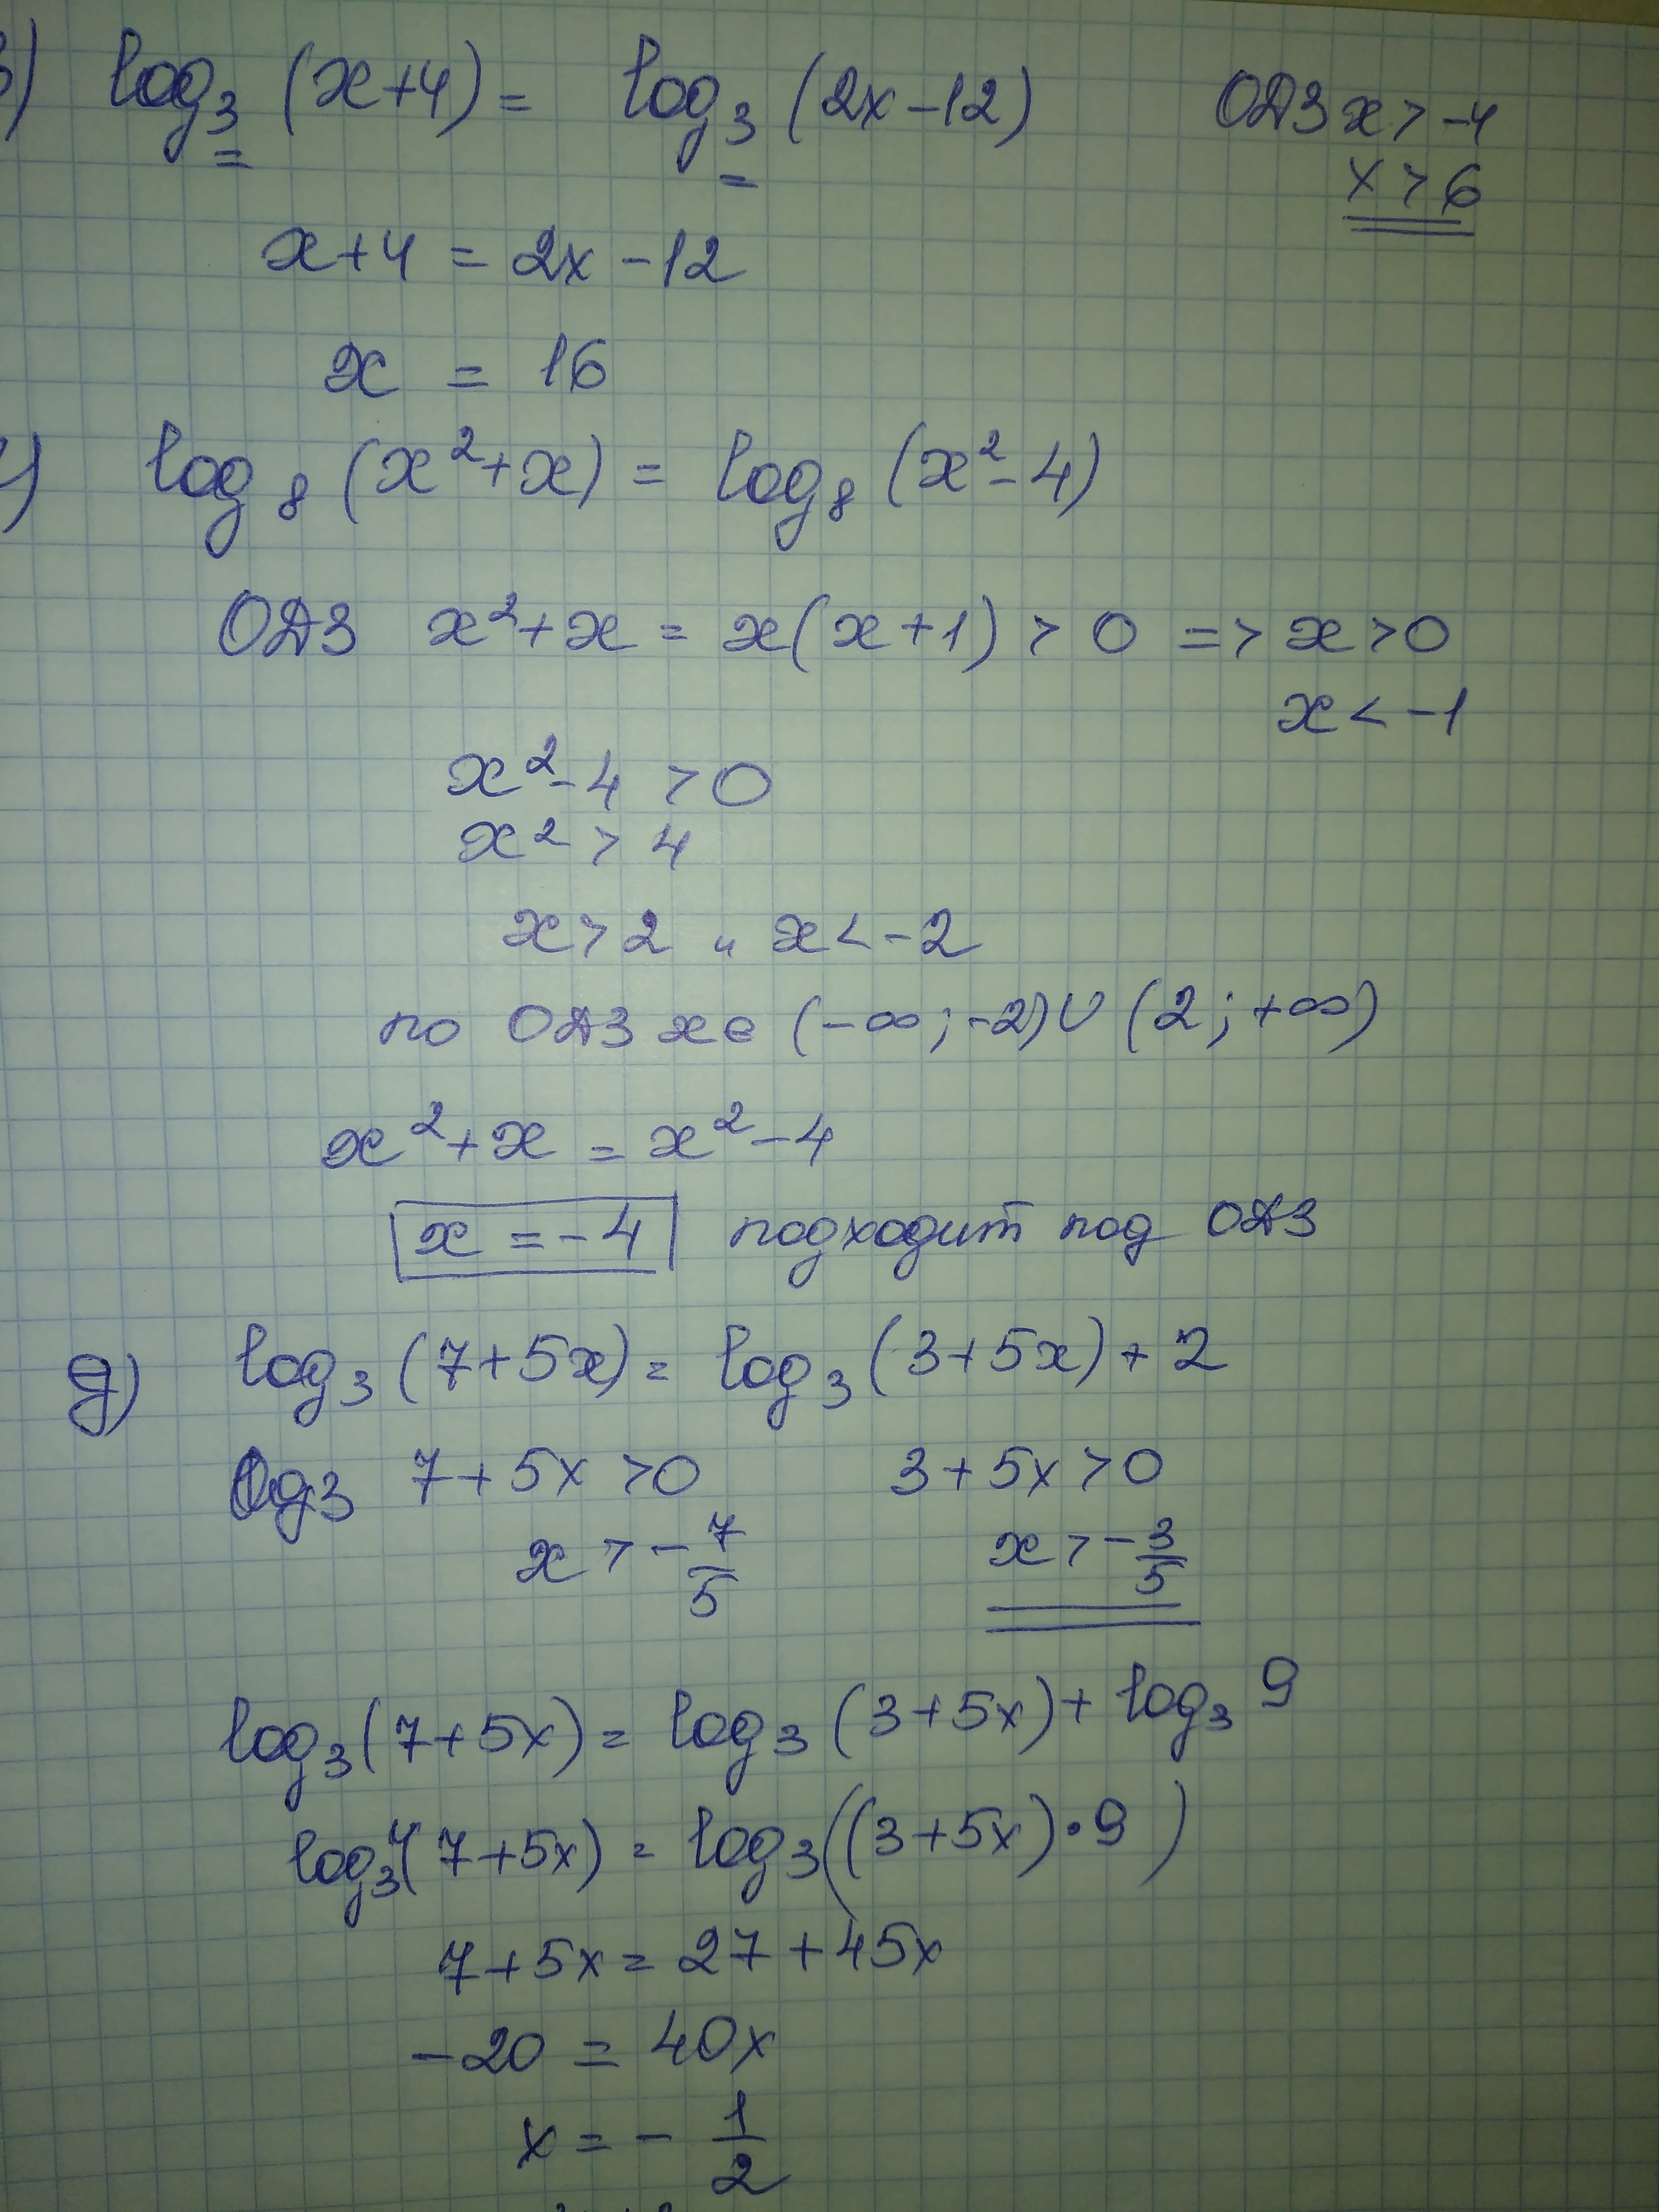 в) log₃ (x+4) = log₃ (2x-12) ОДЗ x > -4
x > 6
x+4 = 2x -12
x = 16
log₈ (x²+x) = log₈ (x²-4)
ОДЗ x²+x = x(x+1) > 0 => x > 0
x < -1
x²-4 > 0
x² > 4
x > 2 и x < -2
по ОДЗ x ∈ (-∞; -2) ∪ (2; +∞)
x²+x = x²-4
x = -4 подходит под ОДЗ
д) log₃ (7+5x) = log₃ (3+5x) + 2
Одз 7+5x > 0 3+5x > 0
x > -7/5 x > -3/5
log₃ (7+5x) = log₃ (3+5x) + log₃ 9
log₃ (7+5x) = log₃ ((3+5x)·9)
7+5x = 27+45x
-20 = 40x
x = -1/2